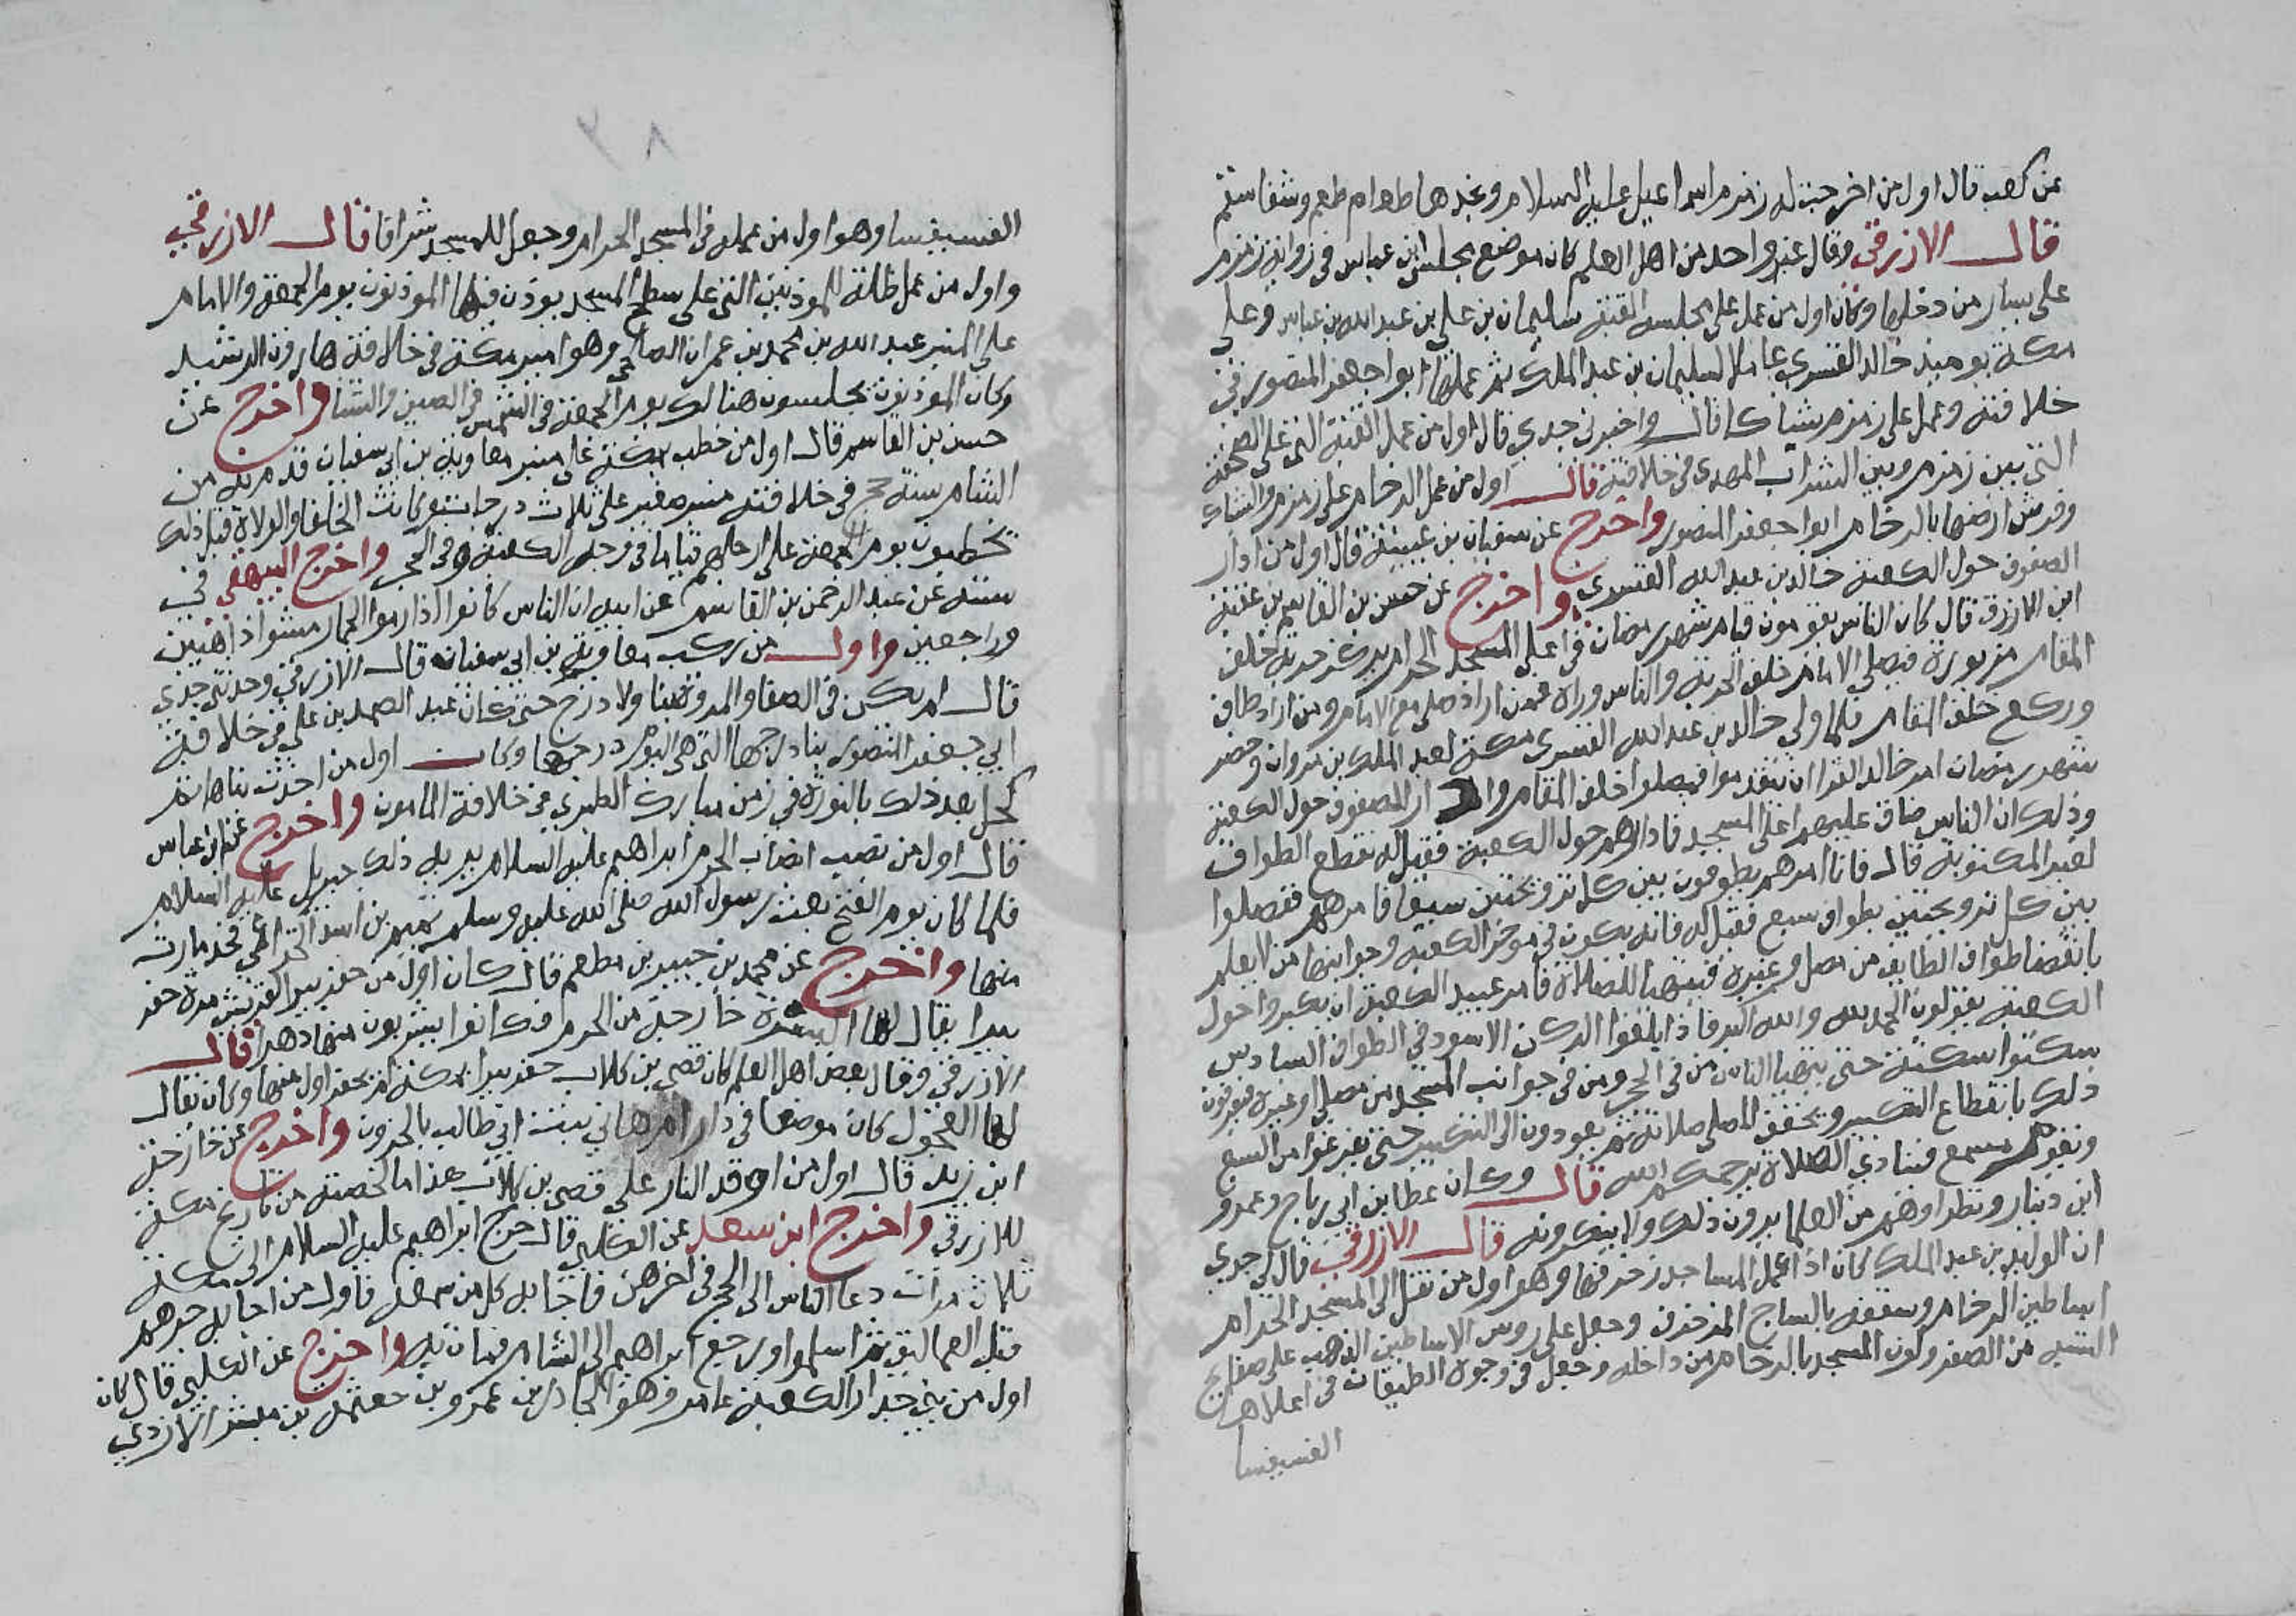 عن كعب قال اول من اخرجت له زمزم اسماعيل عليه السلام وبخدها طعام طعم وشفا سقم
قال الازرقى وقال غير واحد من اهل العلم كان موضع مجلس ابن عباس في زواية زمزم
على يسار من دخلها وكان اول من عمل على مجلسه القبة سليمان بن علي بن عبد الله بن عباس وعلى
مكة يوميذ خالد القسري عاملا لسليمان بن عبد الملك ثم عملها ابو اجعفر المنصور في
خلافته وعمل على زمزم شباكا قال واخبرني جدي قال اول من عمل القبة التي على الصحفة
التي بين زمزم وبين الشراب المهدي في خلافته قال اول من عمل الرخام على زمزم والشباك
وفرش ارضها بالرخام ابوا جعفر المنصور واخرج عن سفيان بن عيينة قال اول من ادار
الصفوف حول الكعبة خالد بن عبد الله القسري واخرج عن حسن بن القاسم بن عقبة
ابن الازرق قال كان الناس يقومون قيام شهر رمضان في اعلى المسجد الحرام يركز حربة خلف
المقام بربوة فيصلي الامام خلف الحربة والناس وراه فمن اراد صلى مع الامام ومن اراد طاف
وركع خلف المقام فلما ولي خالد بن عبد الله القسري مكة لعبد الملك بن مروان وحضر
شهر رمضان امر خالد القرا ان يتقدموا فيصلوا خلف المقام وادار الصفوف حول الكعبة
وذلك ان الناس ضاق عليهم اعلى المسجد فادارهم حول الكعبة فقيل له نقطع الطواف
لغير المكتوبة قال فانا امرهم يطوفون بين كل ترويحتين سبعا فامرهم ففصلوا
بين كل ترويحتين بطواف سبع فقيل له فانه يكون في موخر الكعبة وجوانبها من لا يعلم
بانقضا طواف الطايف من مصل وغيره فيتهيا للصلاة فامر عبيد الكعبة ان يكبروا حول
الكعبة يقولون الحمد لله والله اكبر فاذا بلغوا الركن الاسود في الطواف السادس
سكتوا سكتة حتى يتهيا الناس من في الحجر ومن في جوانب المسجد من مصلي وغيره فيعرفون
ذلك بانقطاع التكبير ويخفف المصلى صلاته ثم يعودون الى التكبير حتى يفرغوا من السبع
ويقوم مسمع فينادي الصلاة يرحمكم الله قال وكان عطا بن ابي رباح وعمرو
ابن دينار ونظراوهم من العلما يرون ذلك ولا ينكرونه قال الازرقي قال لي جدي
ان الوليد بن عبد الملك كان اذا عمل المساجد زخرفها وهو اول من نقل الى المسجد الحرام
اساطين الرخام وسقفه بالساج المزخرف وجعل على روس الاساطين الذهب على صفايح
الشبه من الصفر وكون المسجد بالرخام من داخله وجعل في وجوه الطيقان في اعلاها
الفسيفسا
٨٢
الفسيفسا وهو اول من عمله في المسجد الحرام وجعل للمسجد شرافا قال الازرقي
واول من عمل ظلة للموذنين التي على سطح المسجد يوذن فيها الموذنون يوم الجمعة والامام
على المنبر عبد الله بن محمد بن عمران الصالحي وهو امير مكة في خلافة هارون الرشيد
وكان الموذنون يجلسون هنالك يوم الجمعة في الشمس في الصيف والشتا واخرج عن
حسن بن القاسم قال اول من خطب بمكة على منبر معاوية بن ابي سفيان قدم به من
الشام سنة حج في خلافته منبر صغير على ثلاث درجات وكانت الخلفا والولاة قبل ذلك
يخطبون يوم الجمعة على ارجلهم قياما في وجه الكعبة وفي الحجر واخرج البيهقي في
سننه عن عبد الرحمن بن القاسم عن ابيه ان الناس كانوا اذا رموا الجمار مشوا ذاهبين
وراجعين واول من ركب معاوية بن ابي سفيان قال الازرقي وحدثني جدي
قال لم يكن في الصفا والمروة بنا ولا درج حتى كان عبد الصمد بن علي في خلافة
ابي جعفر المنصور بنا درجها التي هي اليوم درجها وكان اول من احدث بناها ثم
كحل بعد ذلك بالنورة في زمن مبارك الطبري في خلافة المامون واخرج عن ابن عباس
قال اول من نصب انصاب الحرم ابراهيم عليه السلام يريه ذلك جبريل عليه السلام
فلما كان يوم الفتح بعث رسول الله صلى الله عليه وسلم تميم بن اسد الخزاعي فجد ما رث
منها واخرج عن محمد بن جبير بن مطعم قال كان اول من حفر بيرا لقريش مرة حفر
بيرا يقال لها اليسرة خارجة من الحرم فكانوا يشربون منها دهرا قال
الازرقي وقال بعض اهل العلم كان قصي بن كلاب حفر بيرا بمكة لم يحفر اول منها وكان يقال
لها العجول كان موضعها في دار ام هاني بنت ابي طالب بالحزون واخرج عن خارجة
ابن زيد قال اول من اوقد النار على قصي بن كلاب هذا ما لخصته من تاريخ مكة
للازرقي واخرج ابن سعد عن الكلبي قال خرج ابراهيم عليه السلام الى مكة
ثلاث مرات دعا الناس الى الحج في اخرهن فاجابه كل من سمعه فاول من اجابه جرهم
قبل العماليق ثم اسلموا ورجع ابراهيم الى الشام فمات به واخرج عن الكلبي قال كان
اول من بنى جدار الكعبة عامر وهو الجادر بن عمرو بن جعثمة بن مبشر الازدي